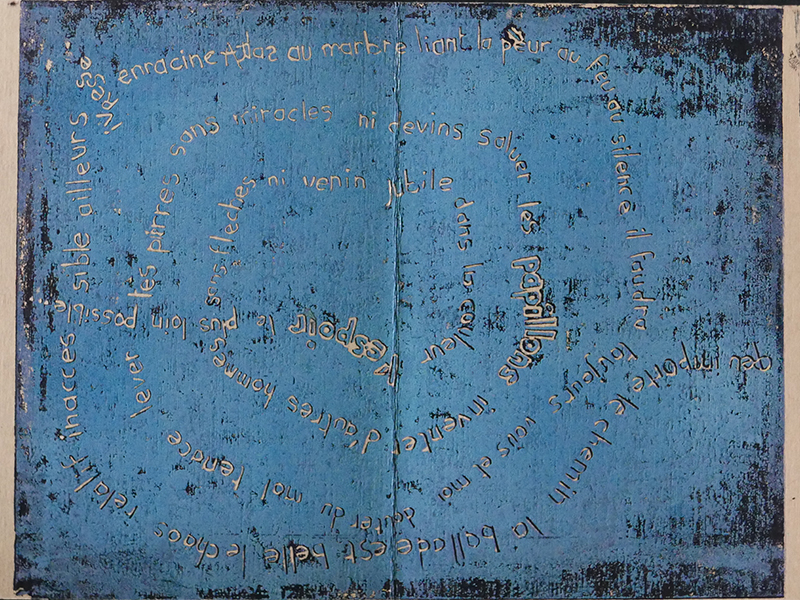 peu importe le chemin
la ballade est belle le chaos relatif
inaccessible ailleurs ivresse
enracine Atlas au marbre liant la peur au feu au silence il faudra
toujours vous et moi
douter du mal tenace
lever les pirres sans miracles ni devins saluer les papillons
inventer d'autres hommes
sans fleches ni venin jubile
dans la couleur
l'espoir le pus loin possible